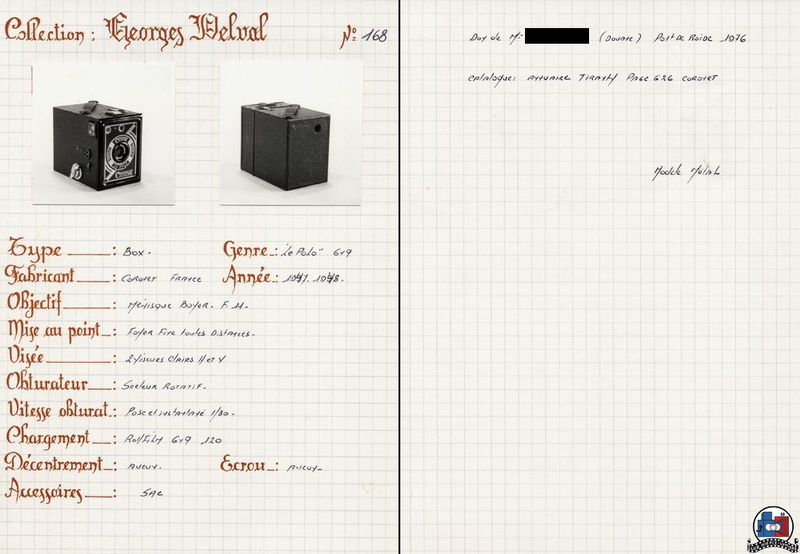 Collection : Georges Delval Nº 168
Type : Box.
Genre : "Le Polo" 6x9
Fabricant : Coronet France
Année : 1947. 1948.
Objectif : Ménisque Boyer. F. 11.
Mise au point : Foyer Fixe toutes Distances.
Visée : 2 Viseurs Clairs H et V
Obturateur : Secteur Rotatif.
Vitesse obturat. : Pose et instantané 1/30.
Chargement : Roll Film 6x9 120
Décentrement : Aucun.
Ecrou : Aucun.
Accessoires : Sac
Don de Mr (Douane) Pont De Roide 1976
Catalogue : Annuaire Tiranty Page 626 Coronet
Modèle